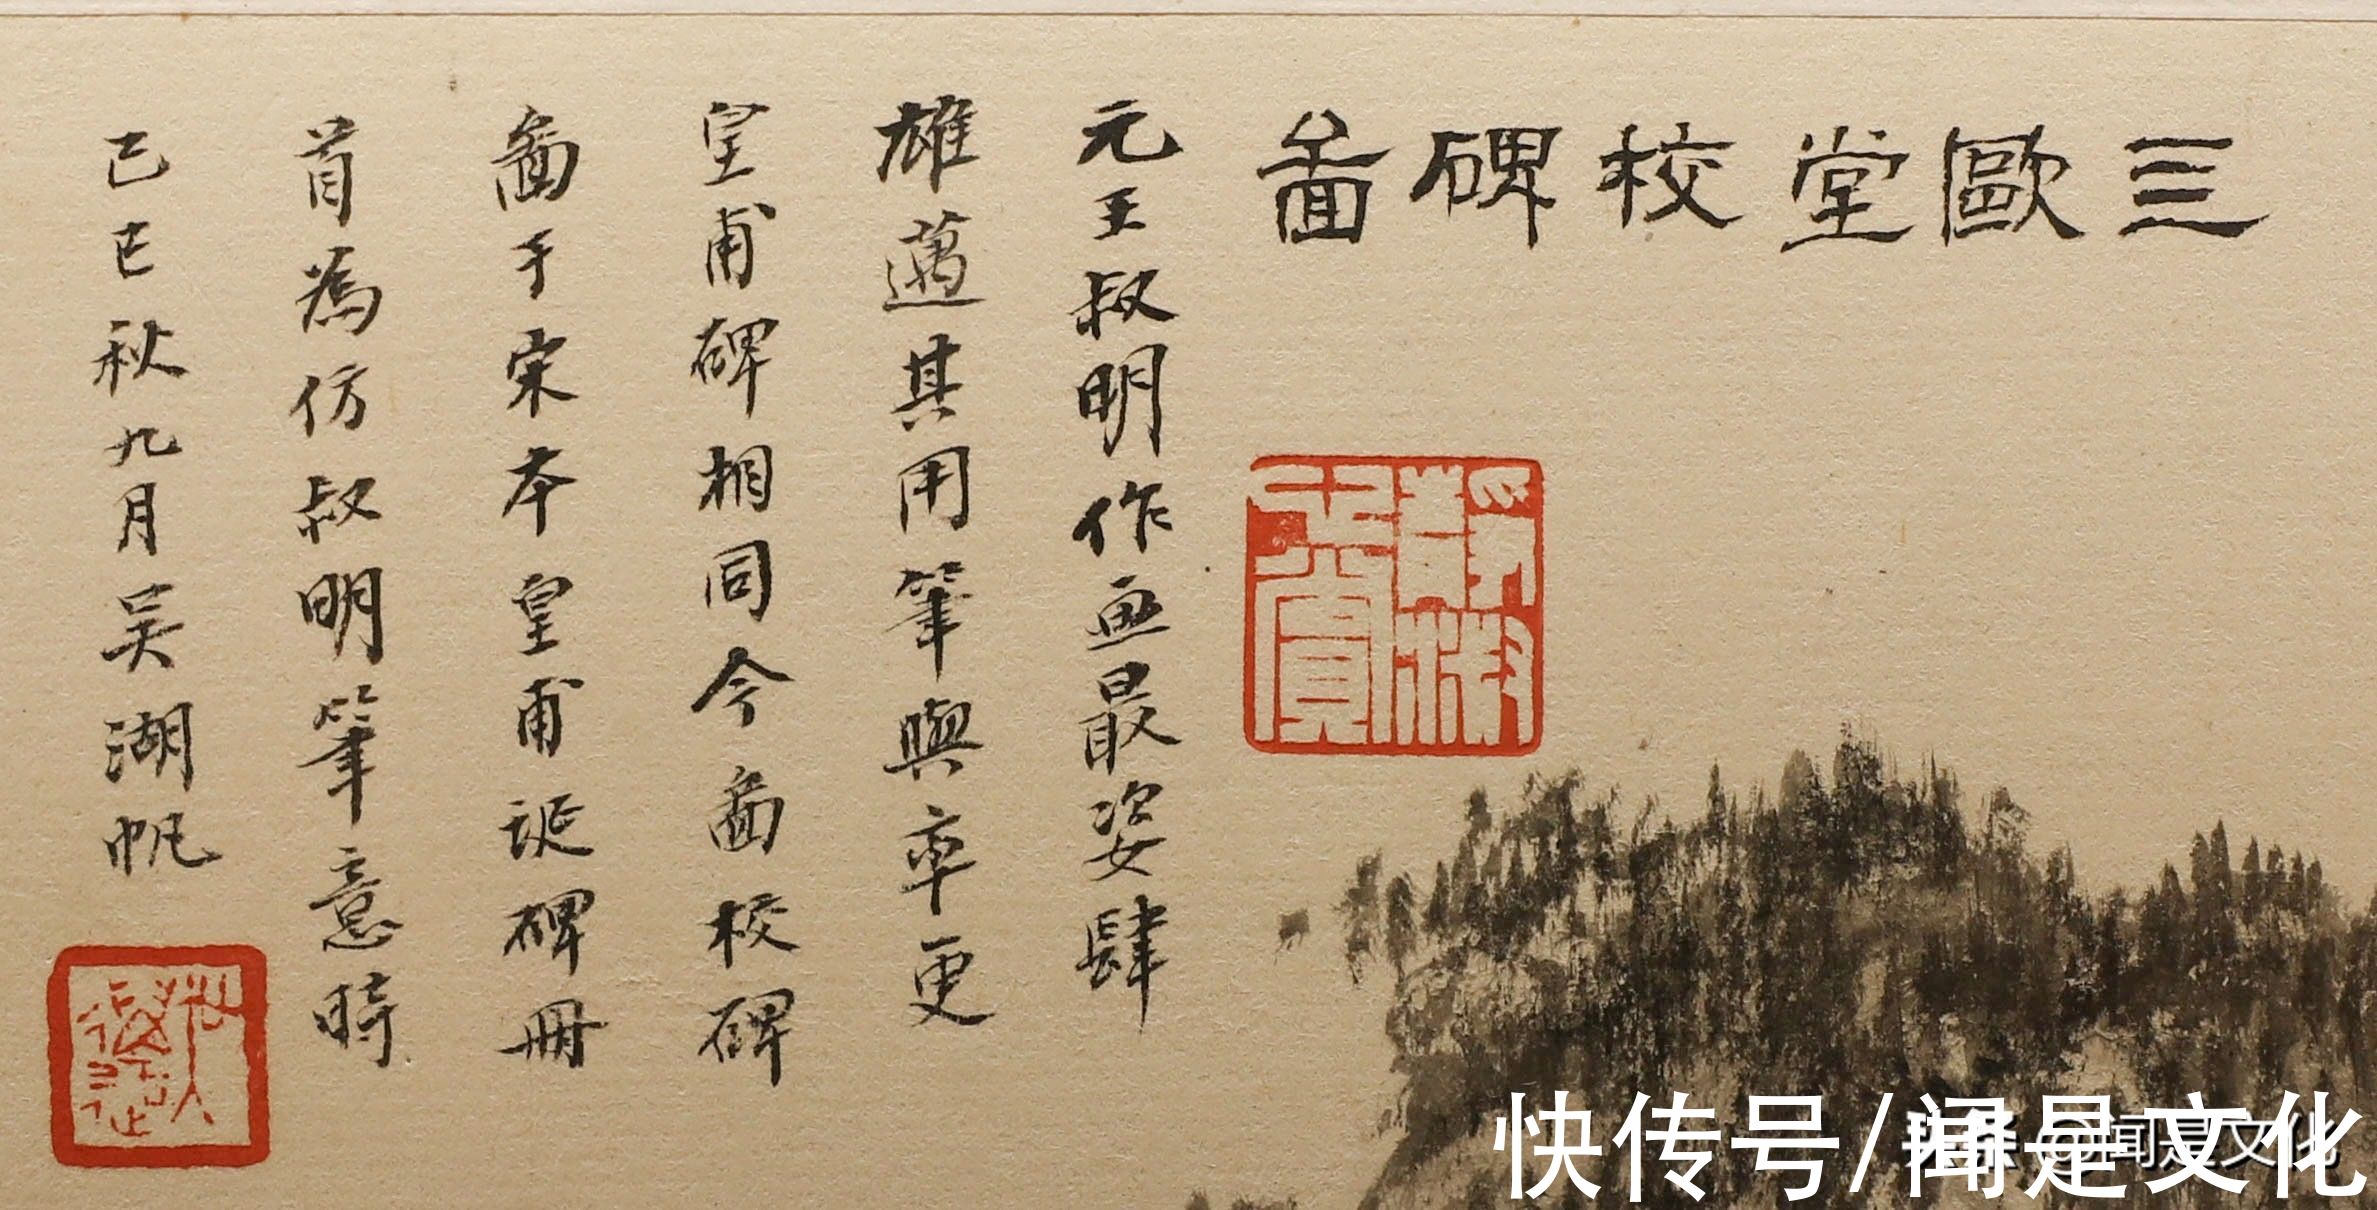 三歐堂校碑啚
元王叔明作畫最姿肆
雄邁其用筆與率更
皇甫碑相同今啚校碑
啚于宋本皇甫誕碑冊
首爲仿叔明筆意時
己巳秋九月吴湖帆
快传号/闻是文化
头条 @闻是文化